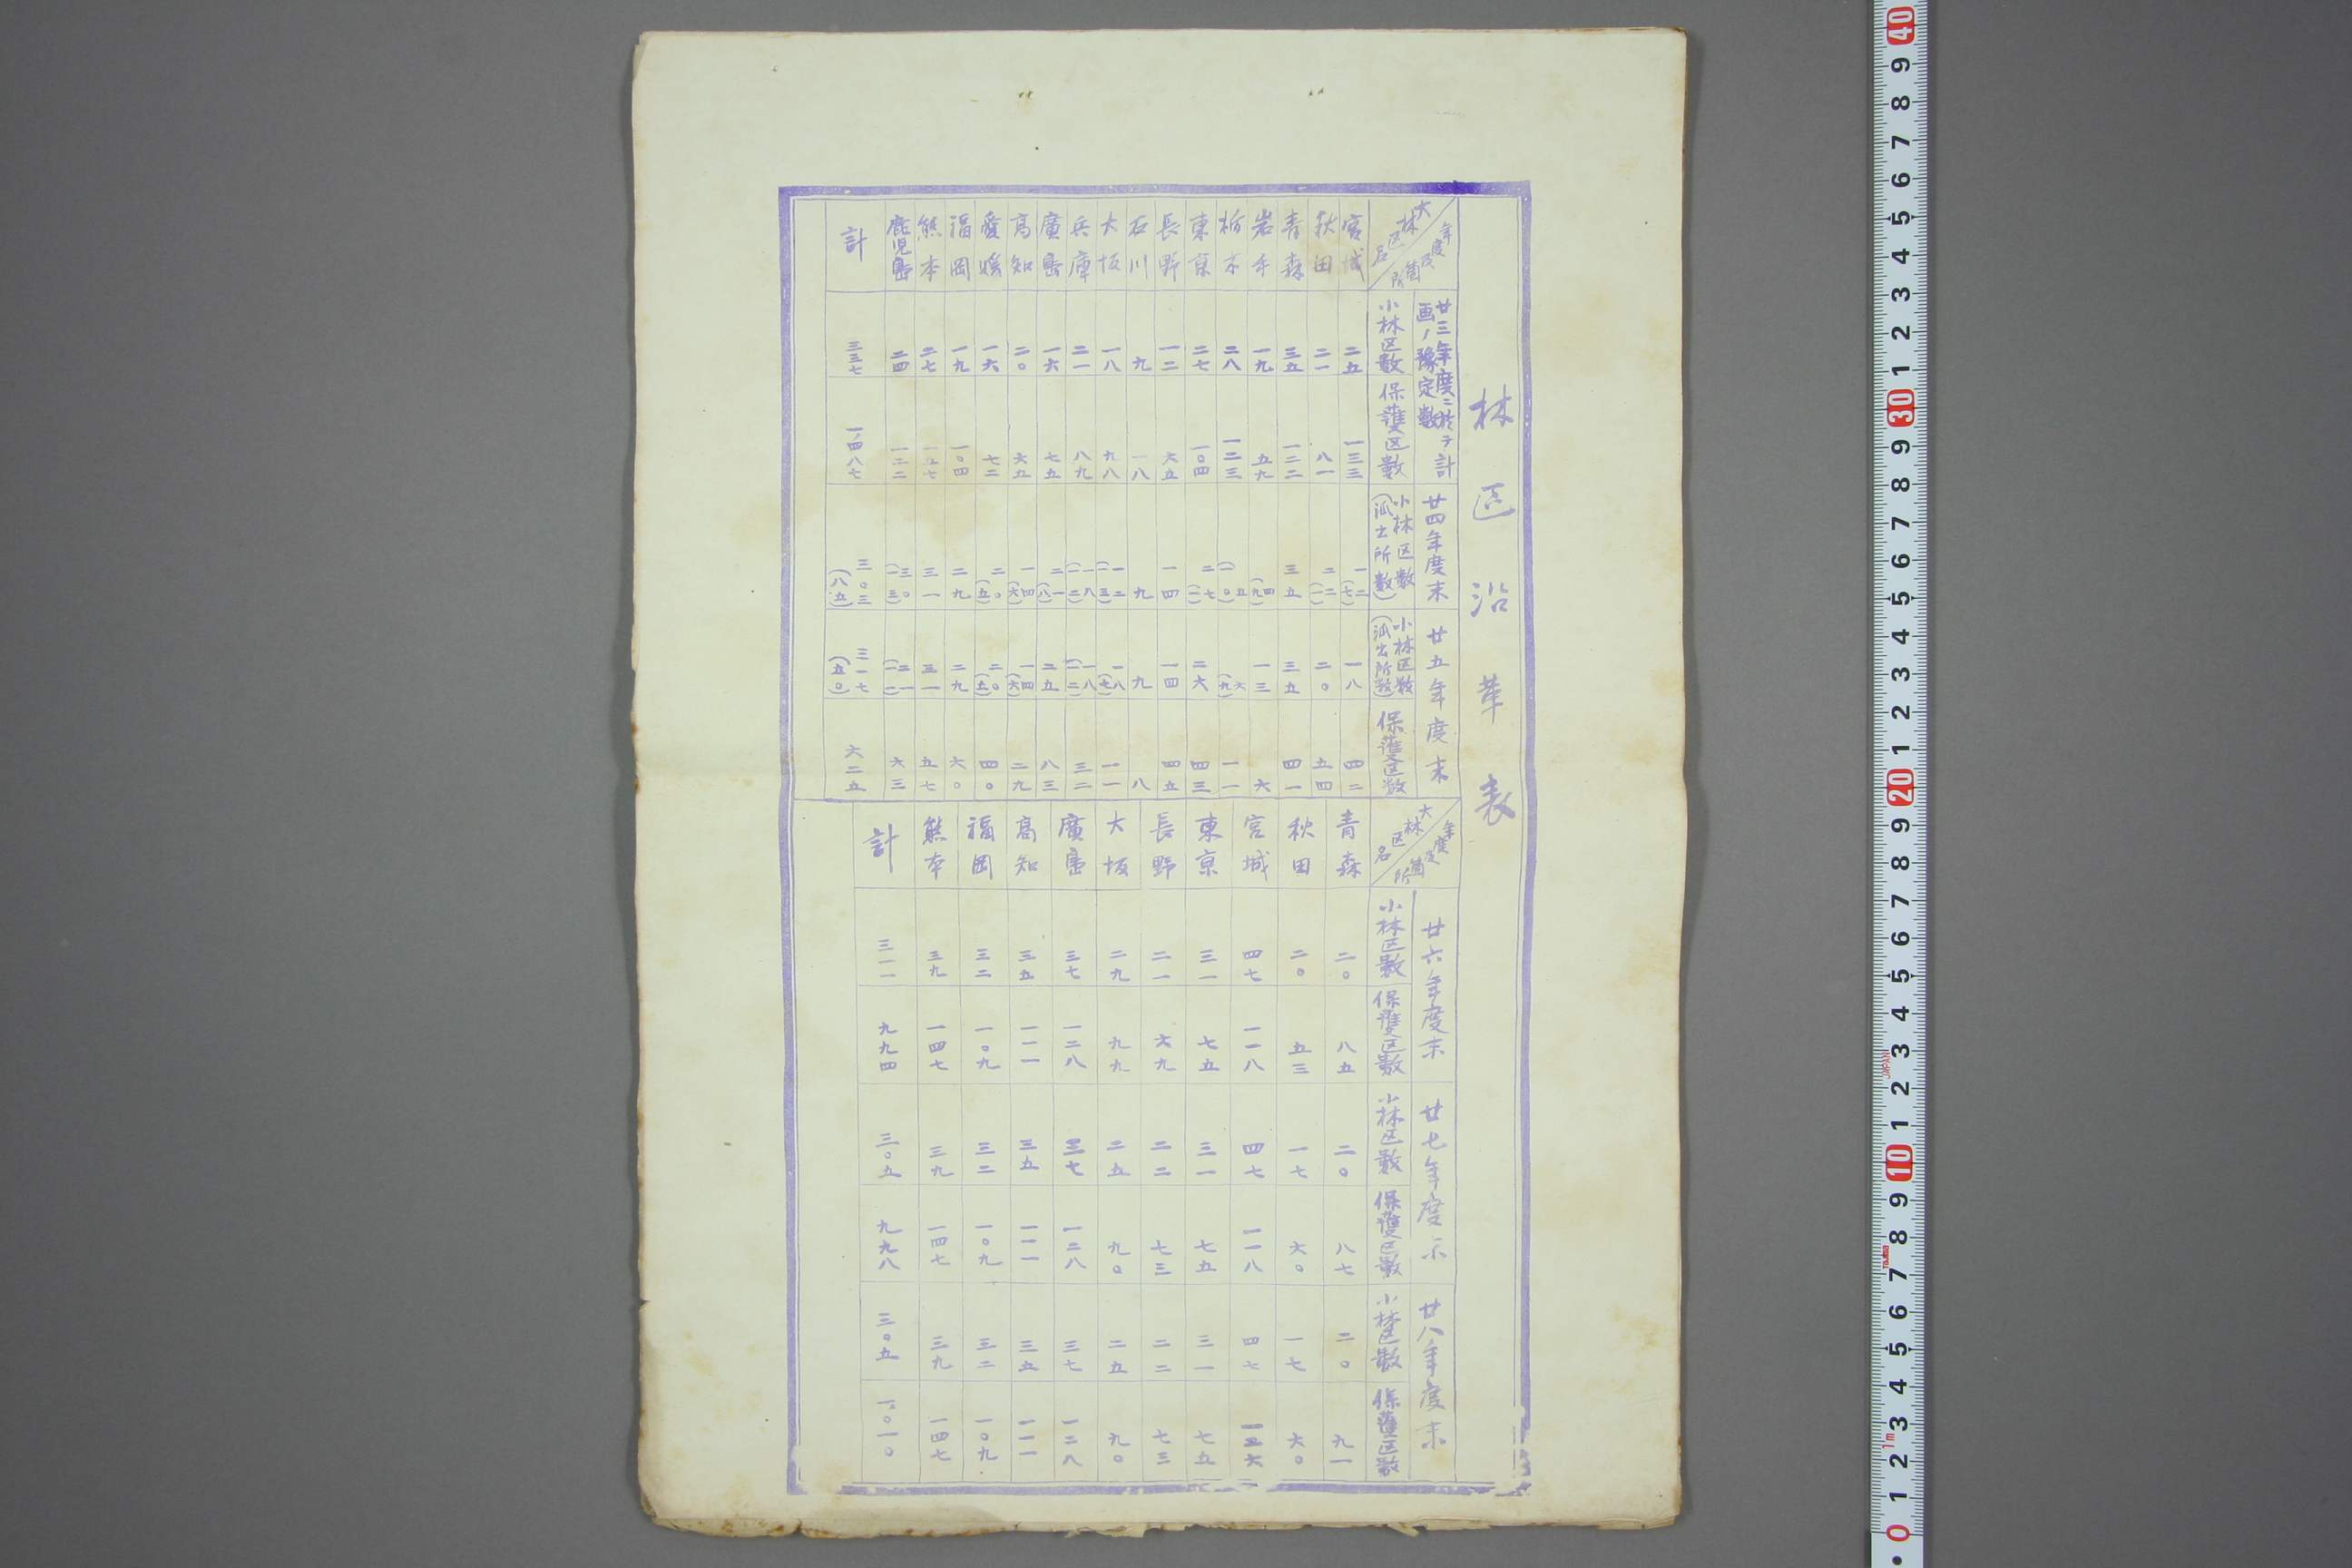 林区沿革表
年度及箇所
大林区名
廿三年度ニ於テ計画ノ豫定数 廿四年度末 廿五年度末
小林区数 保護区数 小林区数(派出所数) 小林区数(派出所数) 保護区数
宮城 二五 一三三 一二(七) 一八 四二
秋田 二一 八一 二二(一) 二〇 五四
青森 三五 一三二 三五 三五 四一
岩手 一九 五九 四(九) 一三 六
栃木 二八 一二三 五(一〇) 六(九) 一一
東京 二七 一〇四 二七(一) 二六 四三
長野 一二 六五 一四 一四 四五
石川 九 一八 九 九 八
大坂 一八 九八 一二(一三) 一八(七) 一一
兵庫 二一 八九 一八(一二) 一八(一二) 三二
廣島 一六 七五 二一(八) 二五 八三
高知 二〇 六五 一四(六) 一四(六) 二九
愛媛 一六 七二 二〇(五) 二〇(五) 四〇
福岡 一九 一〇四 二九 二九 六〇
熊本 二七 一四七 三一 三一 五七
鹿児島 二四 一二二 三〇(一三) 二一(一一) 六三
計 三三七 一、四八七 三〇三(八五) 三一七(五〇) 六二五
年度及箇所
大林区名
廿六年度末 廿七年度末 廿八年度末
小林区数 保護区数 小林区数 保護区数 小林区数 保護区数
青森 二〇 八五 二〇 八七 二〇 九一
秋田 二〇 五三 一七 六〇 一七 六〇
宮城 四七 一一八 四七 一一八 四七 一二六
東京 三一 七五 三一 七五 三一 七五
長野 二一 六九 二二 七三 二二 七三
大坂 二九 九九 二五 九〇 二五 九〇
廣島 三七 一二八 三七 一二八 三七 一二八
高知 三五 一一一 三五 一一一 三五 一一一
福岡 三二 一〇九 三二 一〇九 三二 一〇九
熊本 三九 一四七 三九 一四七 三九 一四七
計 三一一 九九四 三〇五 九九八 三〇五 一、〇一〇